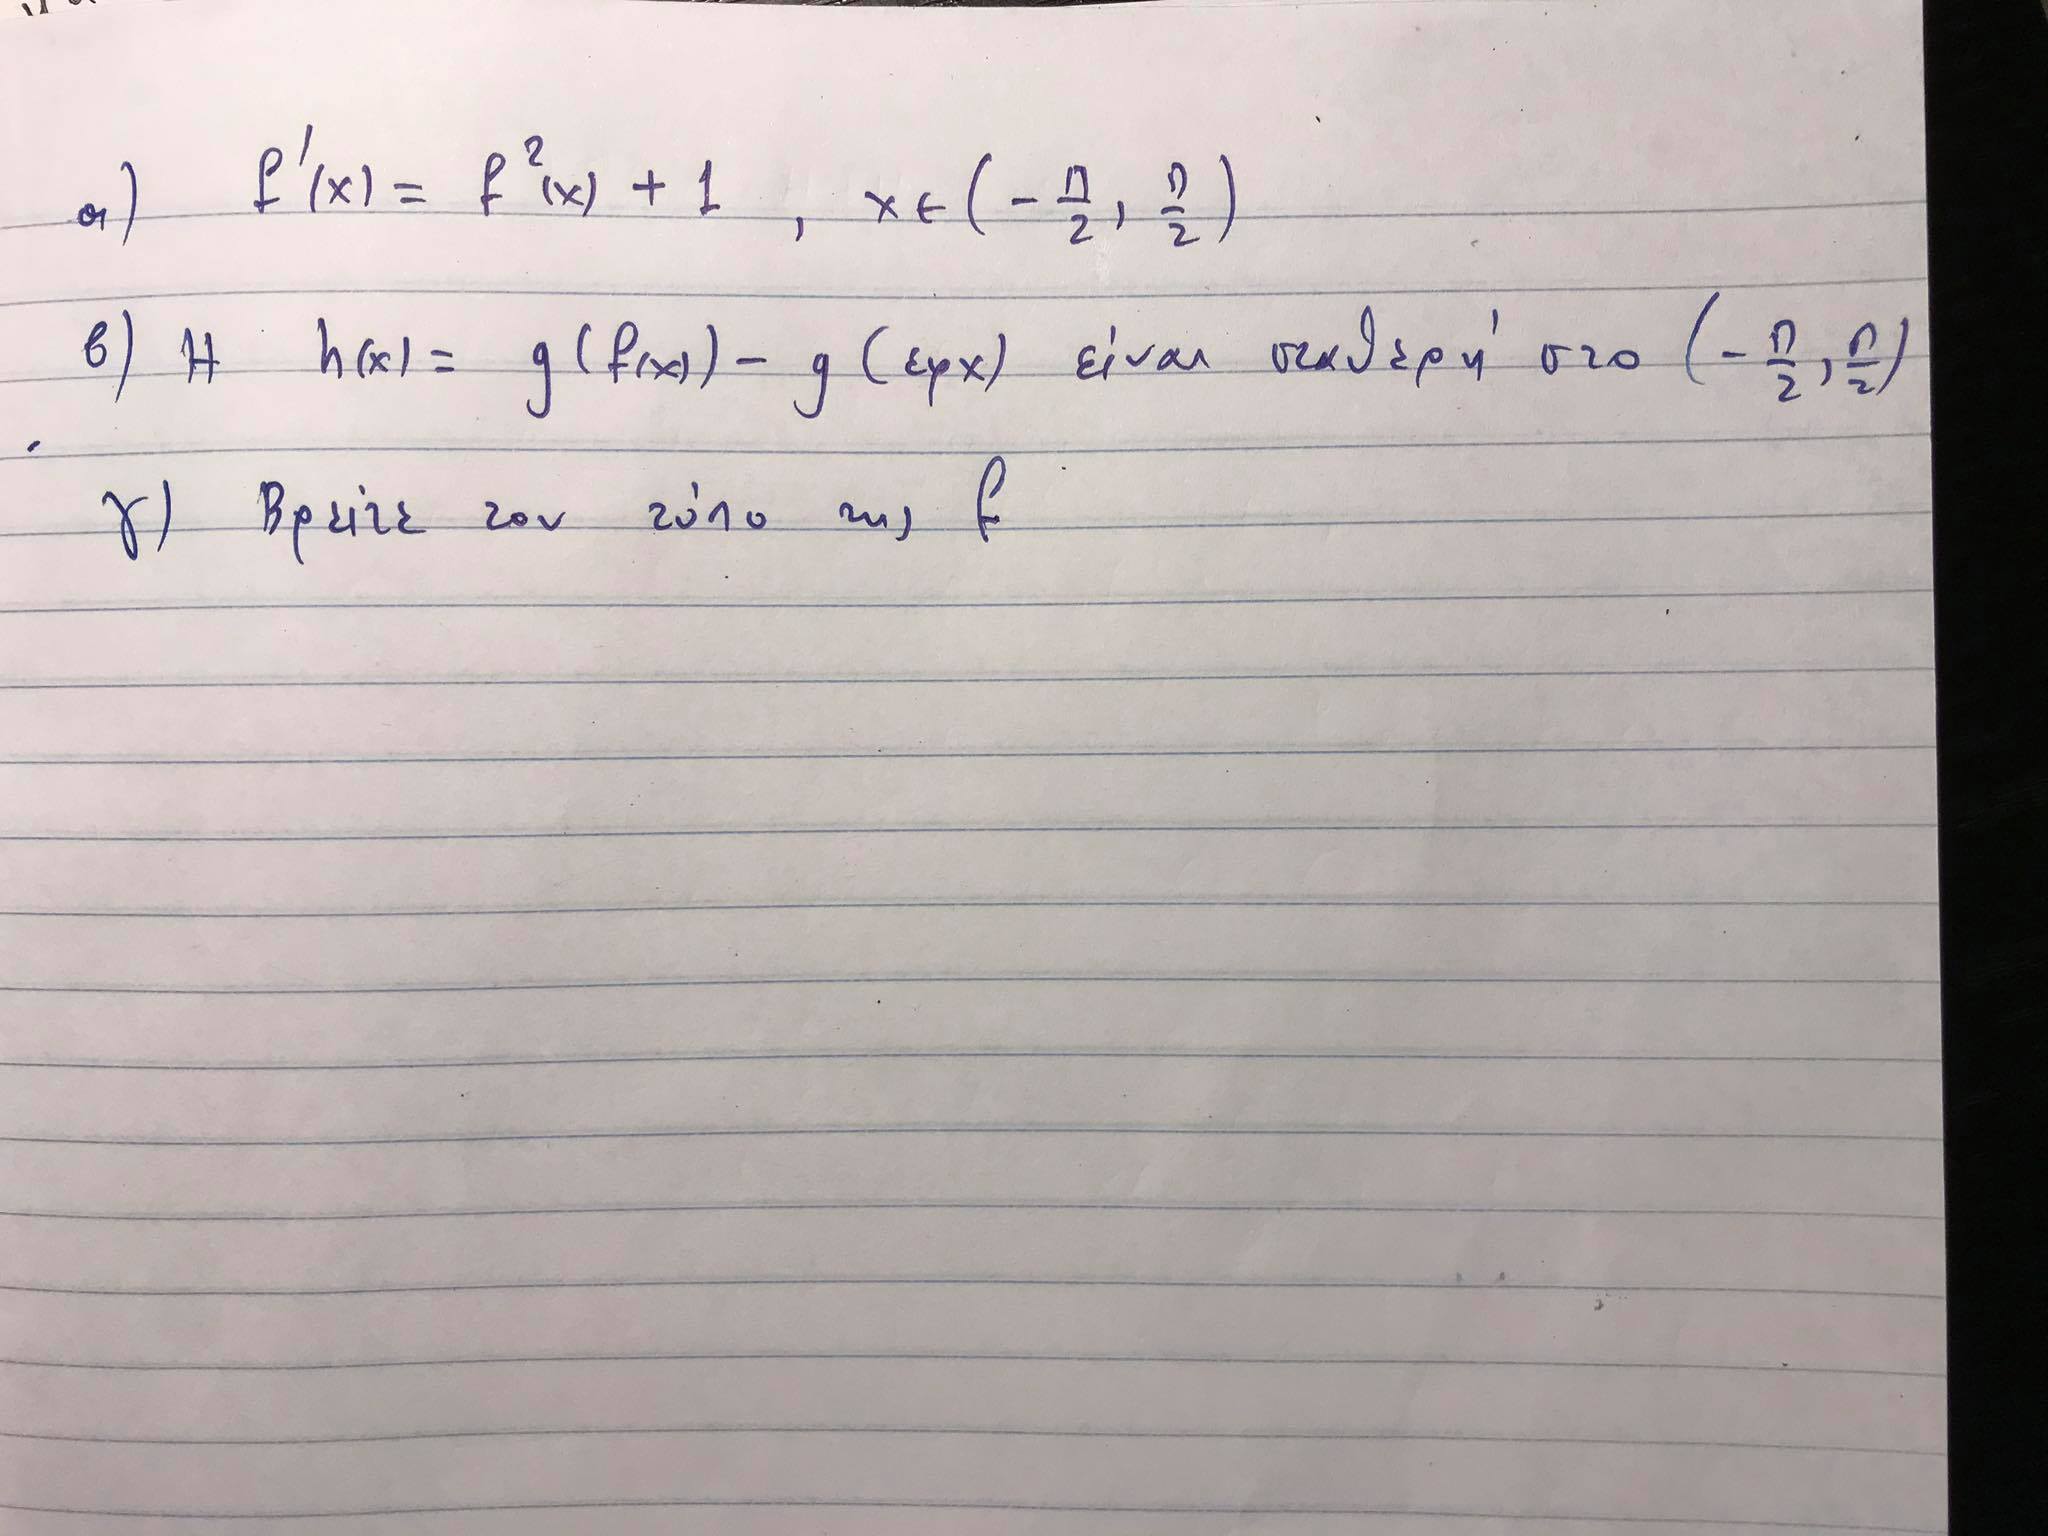 α) f'(x) = f²(x) + 1 , x ∈ (-π/2, π/2)
β) Η h(x) = g(f(x)) - g(εφx) είναι σταθερή στο (-π/2, π/2)
γ) Βρείτε τον τύπο της f